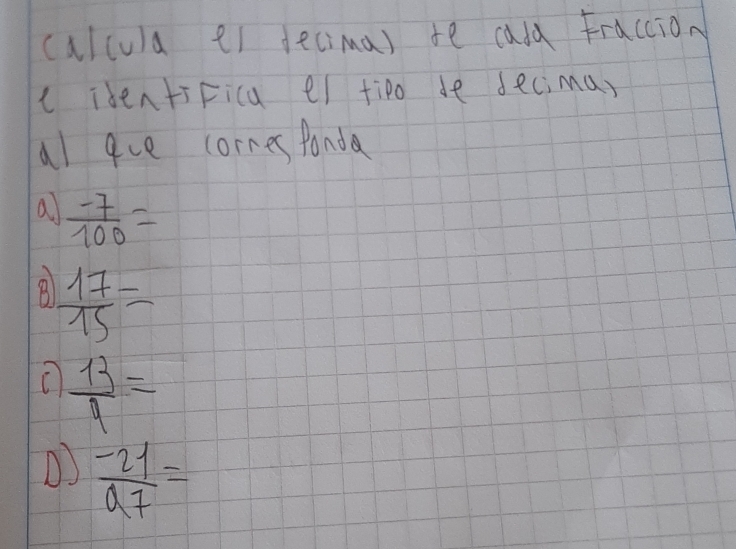 Calcula el decimal de cada Fracción
e identifica el tipo de decimal
al que corresponda
a) -7/100 =
B) 17/15 =
c) 13/9 =
D) -21/97 =